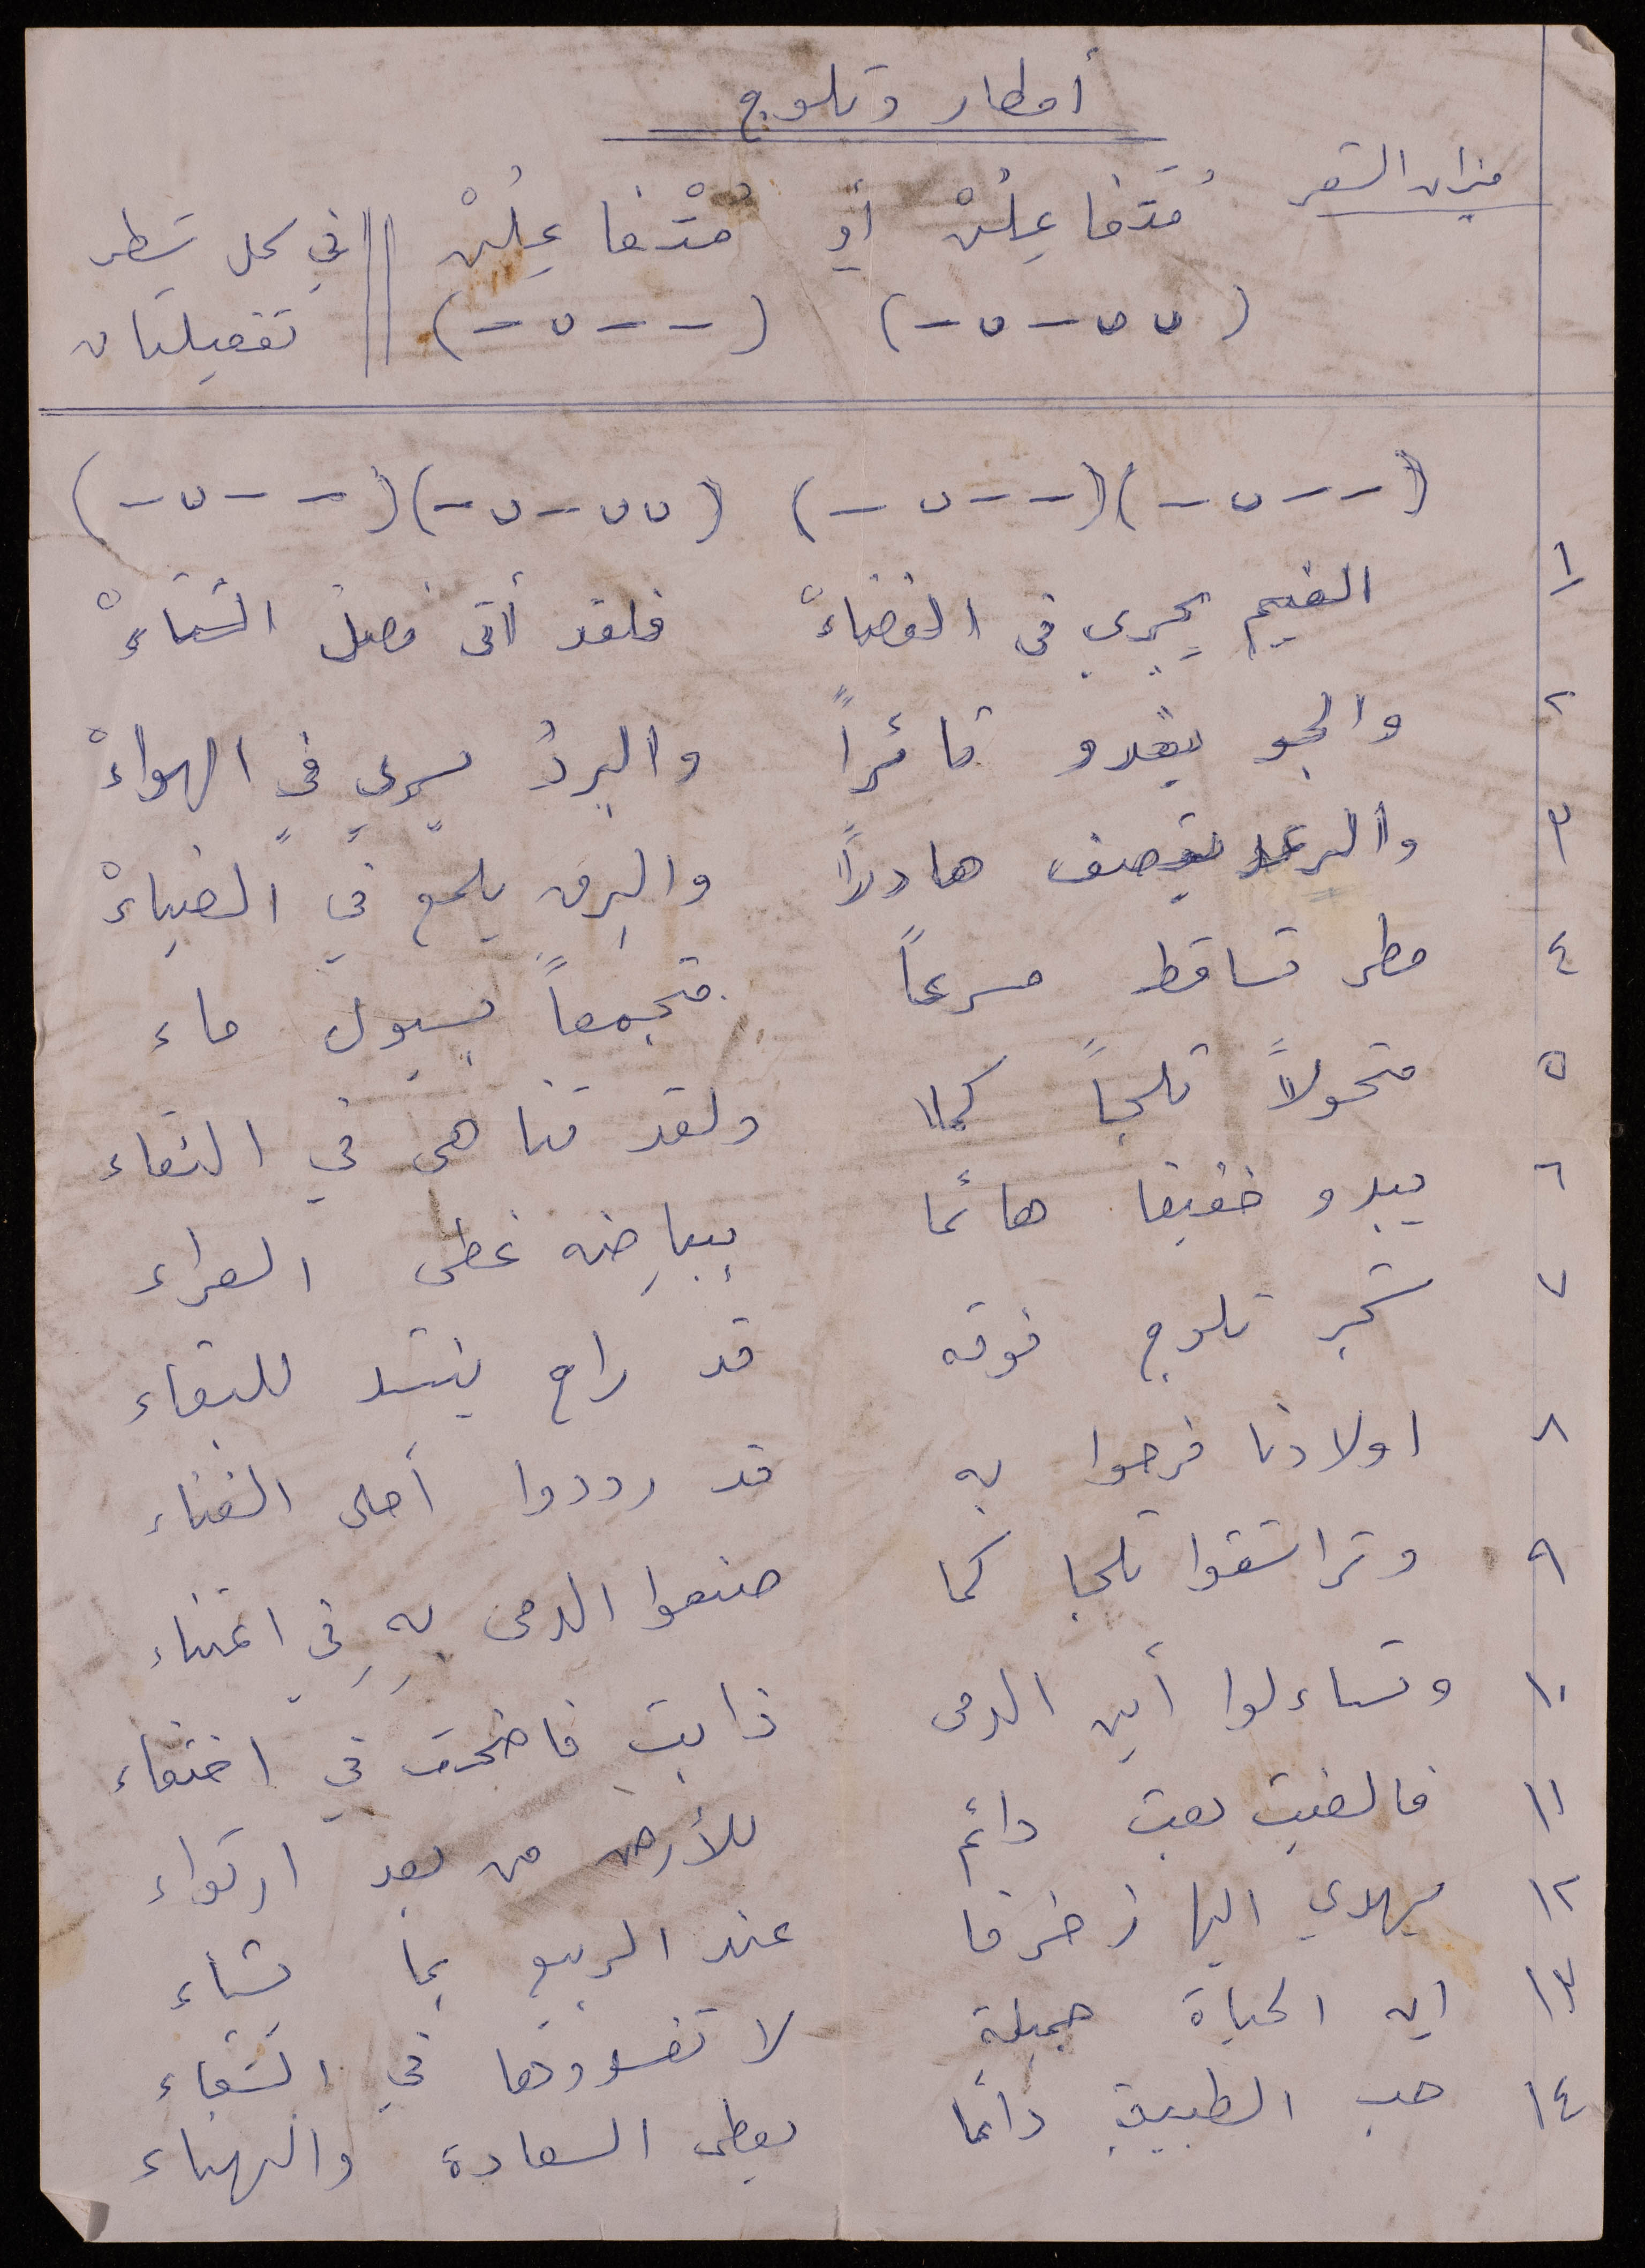 أمطار وثلوج
ميزان الشعر مُتَفاعِلُنْ أو مُتْفاعِلُنْ || في كل شطر
(ں ں – ں –) (– – ں –) || تفعيلتان
(– – ں –)(– – ں –) (ں ں – ں –)(– – ں –)
١ الغيم يجري في الفضاءْ فلقد أتى فصلُ الشتاءْ
٢ والجو يغدو ثائراً والبردُ يسري في الهواءْ
٣ والرعد يقصف هادراً والبرق يلمع في الضياءْ
٤ مطر تساقط مسرعاً متجمعاً بسيول ماء
٥ متحولاً ثلجاً كملا ولقد تناهى في النقاء
٦ يبدو خفيفا هائما ببياضِه غطى العراء
٧ شجر ثلوج فوقه قد راح ينشد للبقاء
٨ اولادنا فرحوا به قد رددوا أحلى الغناء
٩ وتراشقوا ثلجا كما صنعوا الدمى بِهِ فِي اعتناء
١٠ وتساءلوا أين الدمى ذابت فاضحت في اختفاء
١١ فالغيث بعث دائم للأرض من بعد ارتواء
١٢ يهدي اليها زخرفا عند الربيع بما يشاء
١٣ ان الحياة جميلة لا تفسدوها في الشقاء
١٤ حب الطبيعة دائما يعطى السعادة والهناء